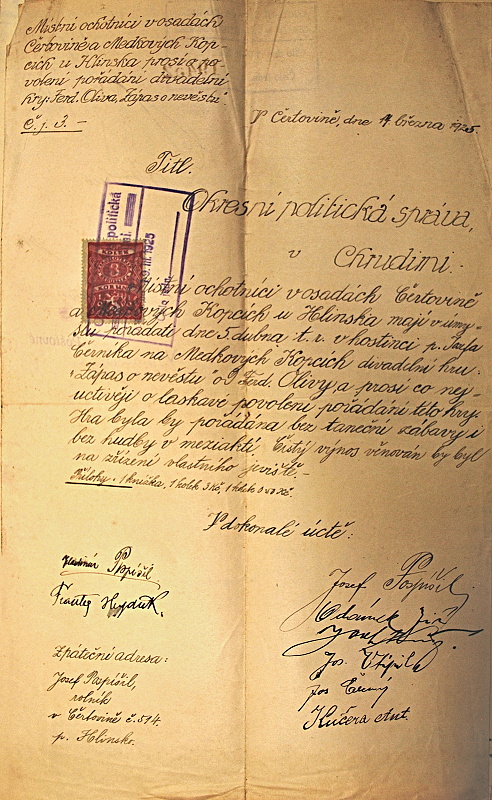 Místní ochotníci v osadách
Čertovině a Medkových Kop-
cích u Hlinska prosí za po-
volení pořádání divadelní
hry: Ferd. Oliva, "Zápas o nevěstu".
Č. j. 3. —
V Čertovině, dne 14 března 1925.
Titl.
Okresní politická správa,
v
Chrudimi.
politická
III. 1925
KOLEK
8
Místní ochotníci v osadách Čertovině
a Medkových Kopcích u Hlinska mají v úmy-
slu pořádati dne 5. dubna t. r. v hostinci p. Josefa
Černíka na Medkových Kopcích divadelní hru:
"Zápas o nevěstu" od Ferd. Olivy, a prosí co nej-
uctivěji o laskavé povolení pořádání této hry.
Hra byla by pořádána bez taneční zábavy i
bez hudby v meziaktí. Čistý výnos věnován by byl
na zřízení vlastního jeviště.
Přílohy: 1 knížka, 1 kolek 3 Kč, 1 kolek
V dokonalé úctě:
Vladimír Pospíšil
Josef Pospíšil
Frant. Hejduk.
Odámek Jiří
Josef
Jos. Vtípil
Jos Černý
Kučera Ant.
Zpáteční adresa:
Josef Pospíšil,
rolník
v Čertovině č. 514.
p. Hlinsko.